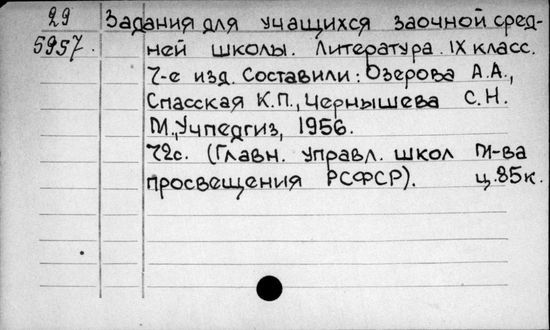 29
5957.
Задания для учащихся заочной сред-
ней школы. Литература. IX класс.
7-е изд. Составили: Озерова А.А.,
Спасская К.П., Чернышева С.Н.
М., Учпедгиз, 1956.
72с. (Главн. управл. школ М-ва
просвещения РСФСР). ц.85к.